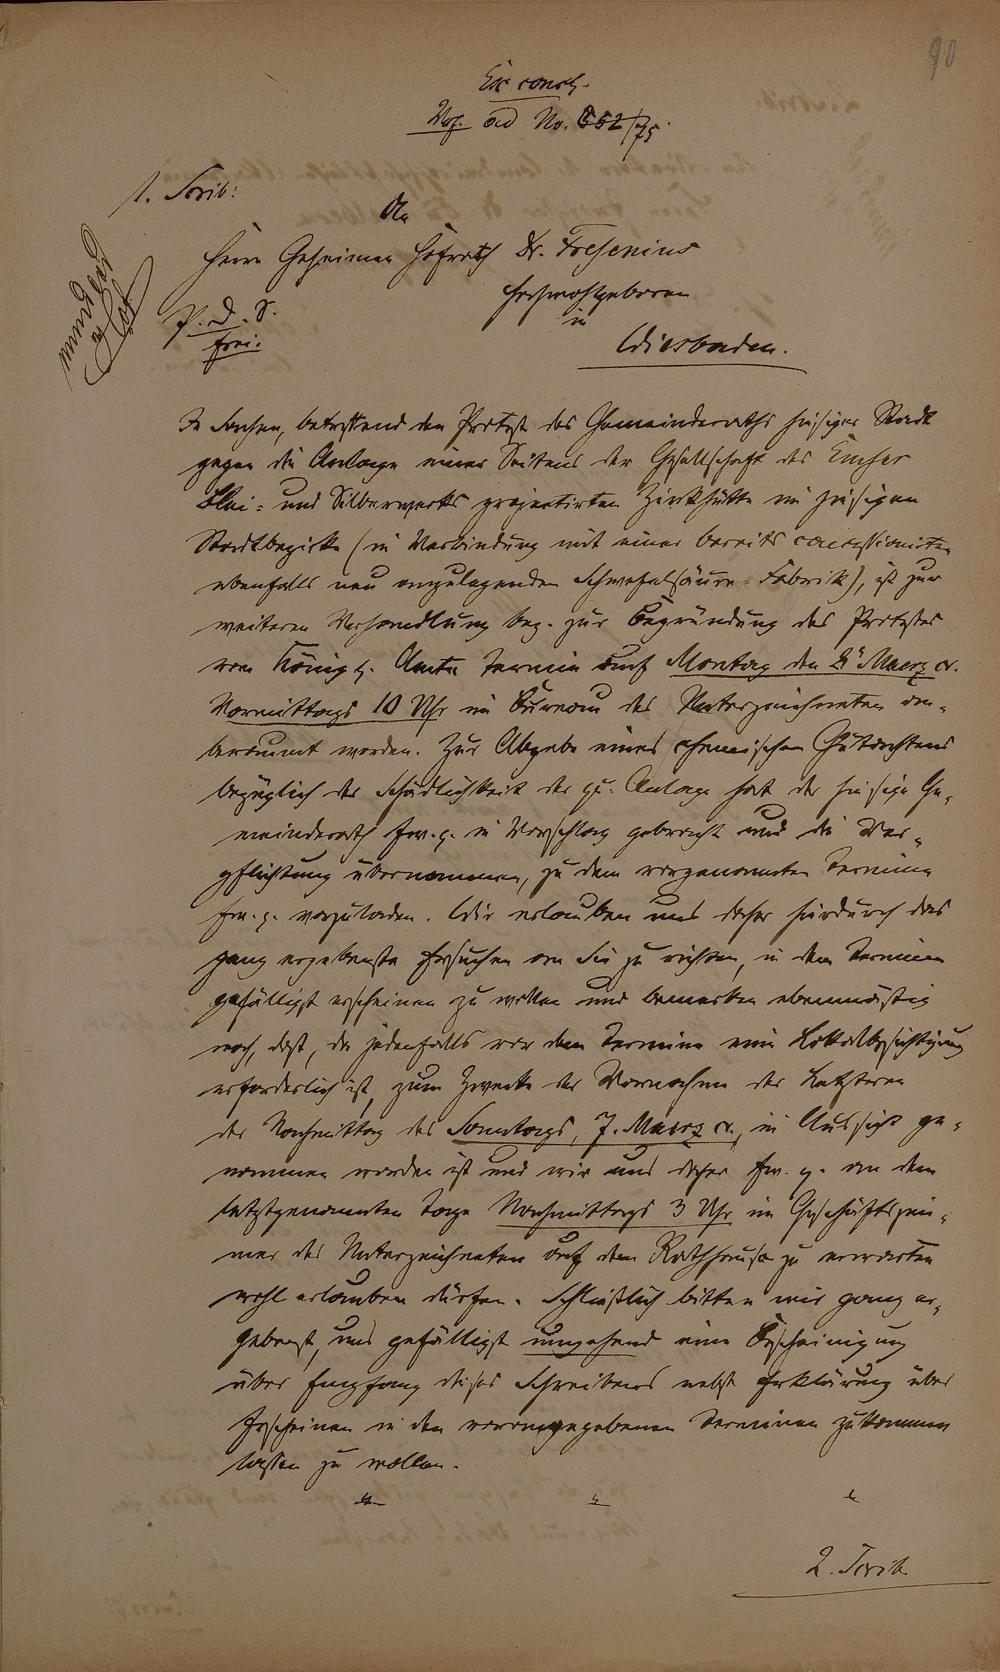 90
Ex conch.
Vfg. ad No. 652/75.
1. Scrib:
An
Herrn Geheimen Hofrath Dr. Fresenius
Hochwohlgeboren
in
Wiesbaden.
P. D. S.
frei.
mundirt
In Sachen, betreffend den Protest des Gemeinderaths hiesiger Stadt
gegen die Anlage einer Seitens der Gesellschaft des Emser
Blei- und Silberwerks projectirten Zinkhütte im hiesigen
Stadtbezirke (in Verbindung mit einer bereits concessionirten
ebenfalls neu anzulegenden Schwefelsäure-Fabrik), ist zur
weiteren Verhandlung bez. zur Begründung des Protestes
vom Königl. Amte Termin auf Montag den 8. Maerz cr.
Vormittags 10 Uhr im Bureau des Unterzeichneten an-
beraumt worden. Zur Abgabe eines chemischen Gutachtens
bezüglich der Schädlichkeit der qu. Anlage hat der hiesige Ge-
meinderath Ew. H. in Vorschlag gebracht und die Ver-
pflichtung übernommen, zu dem vorgenannten Termine
Ew. H. vorzuladen. Wir erlauben uns daher hierdurch das
ganz ergebenste Ersuchen an Sie zu richten, in dem Termine
gefälligst erscheinen zu wollen und bemerken ebenmäßig
noch, daß, da jedenfalls vor dem Termine eine Lokalbesichtigung
erforderlich ist, zum Zwecke der Vornahme der Letzteren
der Nachmittag des Sonntags, 7. Maerz cr., in Aussicht ge-
nommen worden ist und wir uns daher Ew. H. an dem
letztgenannten Tage Nachmittags 3 Uhr im Geschäftszim-
mer des Unterzeichneten auf dem Rathhause zu erwarten
wohl erlauben dürfen. Schließlich bitten wir ganz er-
gebenst, uns gefälligst umgehend eine Bescheinigung
über Empfang dieses Schreibens nebst Erklärung über
Erscheinen in den vorangegebenen Terminen zukommen
lassen zu wollen.
2. Scrib.